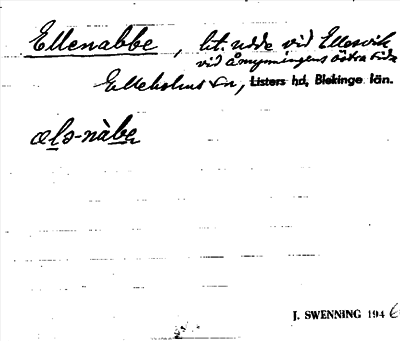 Ellenabbe, lit. udde vid Ellesvik
vid åmynningens östra sida
Elleholms sn, Listers hd, Blekinge län.
ælə-nàbe
J. SWENNING 194